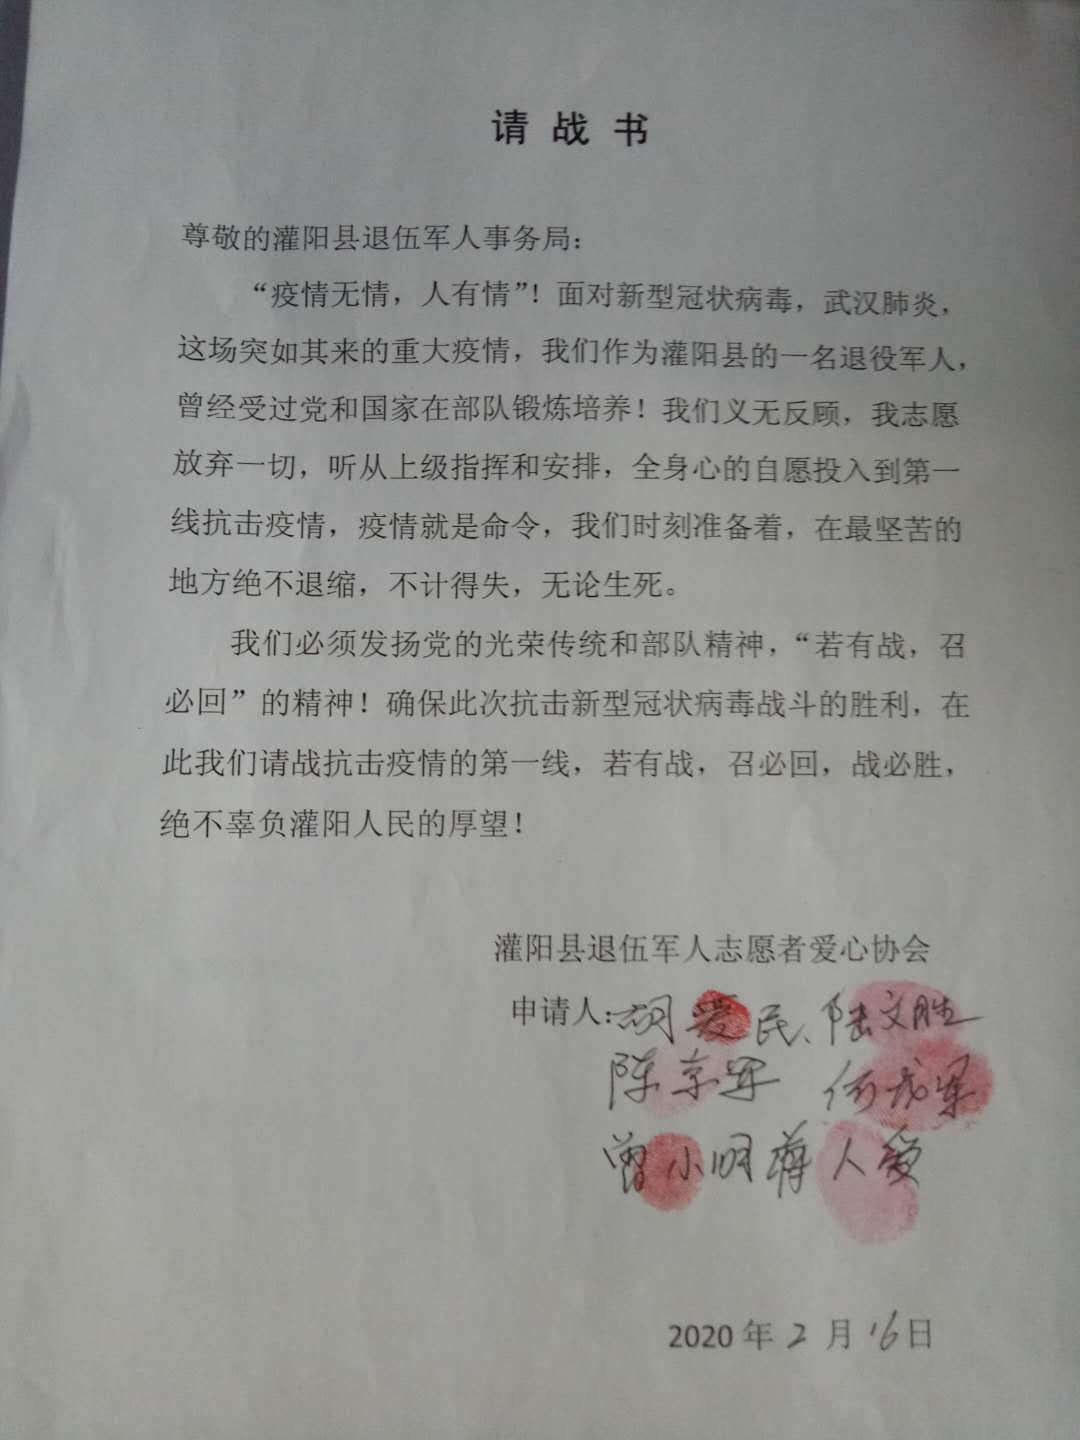 请战书
尊敬的灌阳县退伍军人事务局：
“疫情无情，人有情”！面对新型冠状病毒，武汉肺炎，
这场突如其来的重大疫情，我们作为灌阳县的一名退役军人，
曾经受过党和国家在部队锻炼培养！我们义无反顾，我志愿
放弃一切，听从上级指挥和安排，全身心的自愿投入到第一
线抗击疫情，疫情就是命令，我们时刻准备着，在最坚苦的
地方绝不退缩，不计得失，无论生死。
我们必须发扬党的光荣传统和部队精神，“若有战，召
必回”的精神！确保此次抗击新型冠状病毒战斗的胜利，在
此我们请战抗击疫情的第一线，若有战，召必回，战必胜，
绝不辜负灌阳人民的厚望！
灌阳县退伍军人志愿者爱心协会
申请人：胡爱民、陆文胜
陈京军 何成军
曾小明 蒋人爱
2020年2月16日